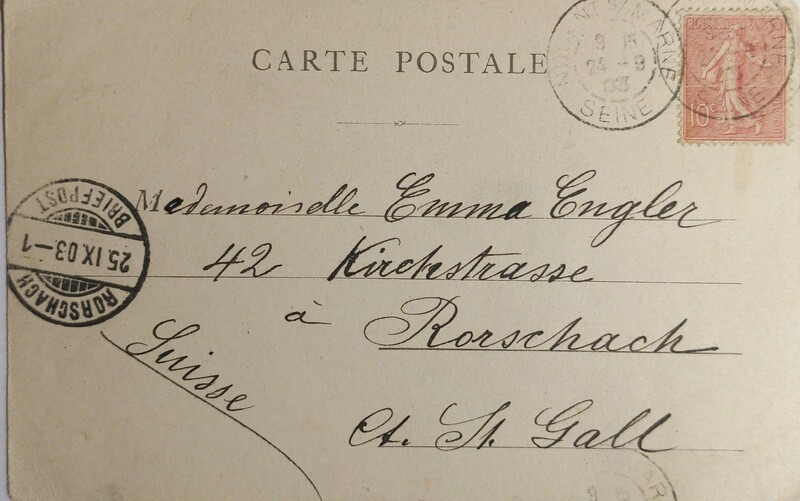 CARTE POSTALE
NOGENT S/ MARNE
8 15
24 - 9
03
SEINE
REPUBLIQUE FRANÇAISE
10c
Mademoiselle Emma Engler
42 Kirchstrasse
à Rorschach
Suisse
Ct. St. Gall
BRIEFPOST
25.IX.03-1
RORSCHACH